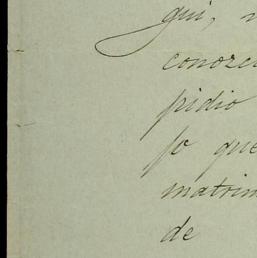 gui,
conozc
pidio
fo que
matrim
de